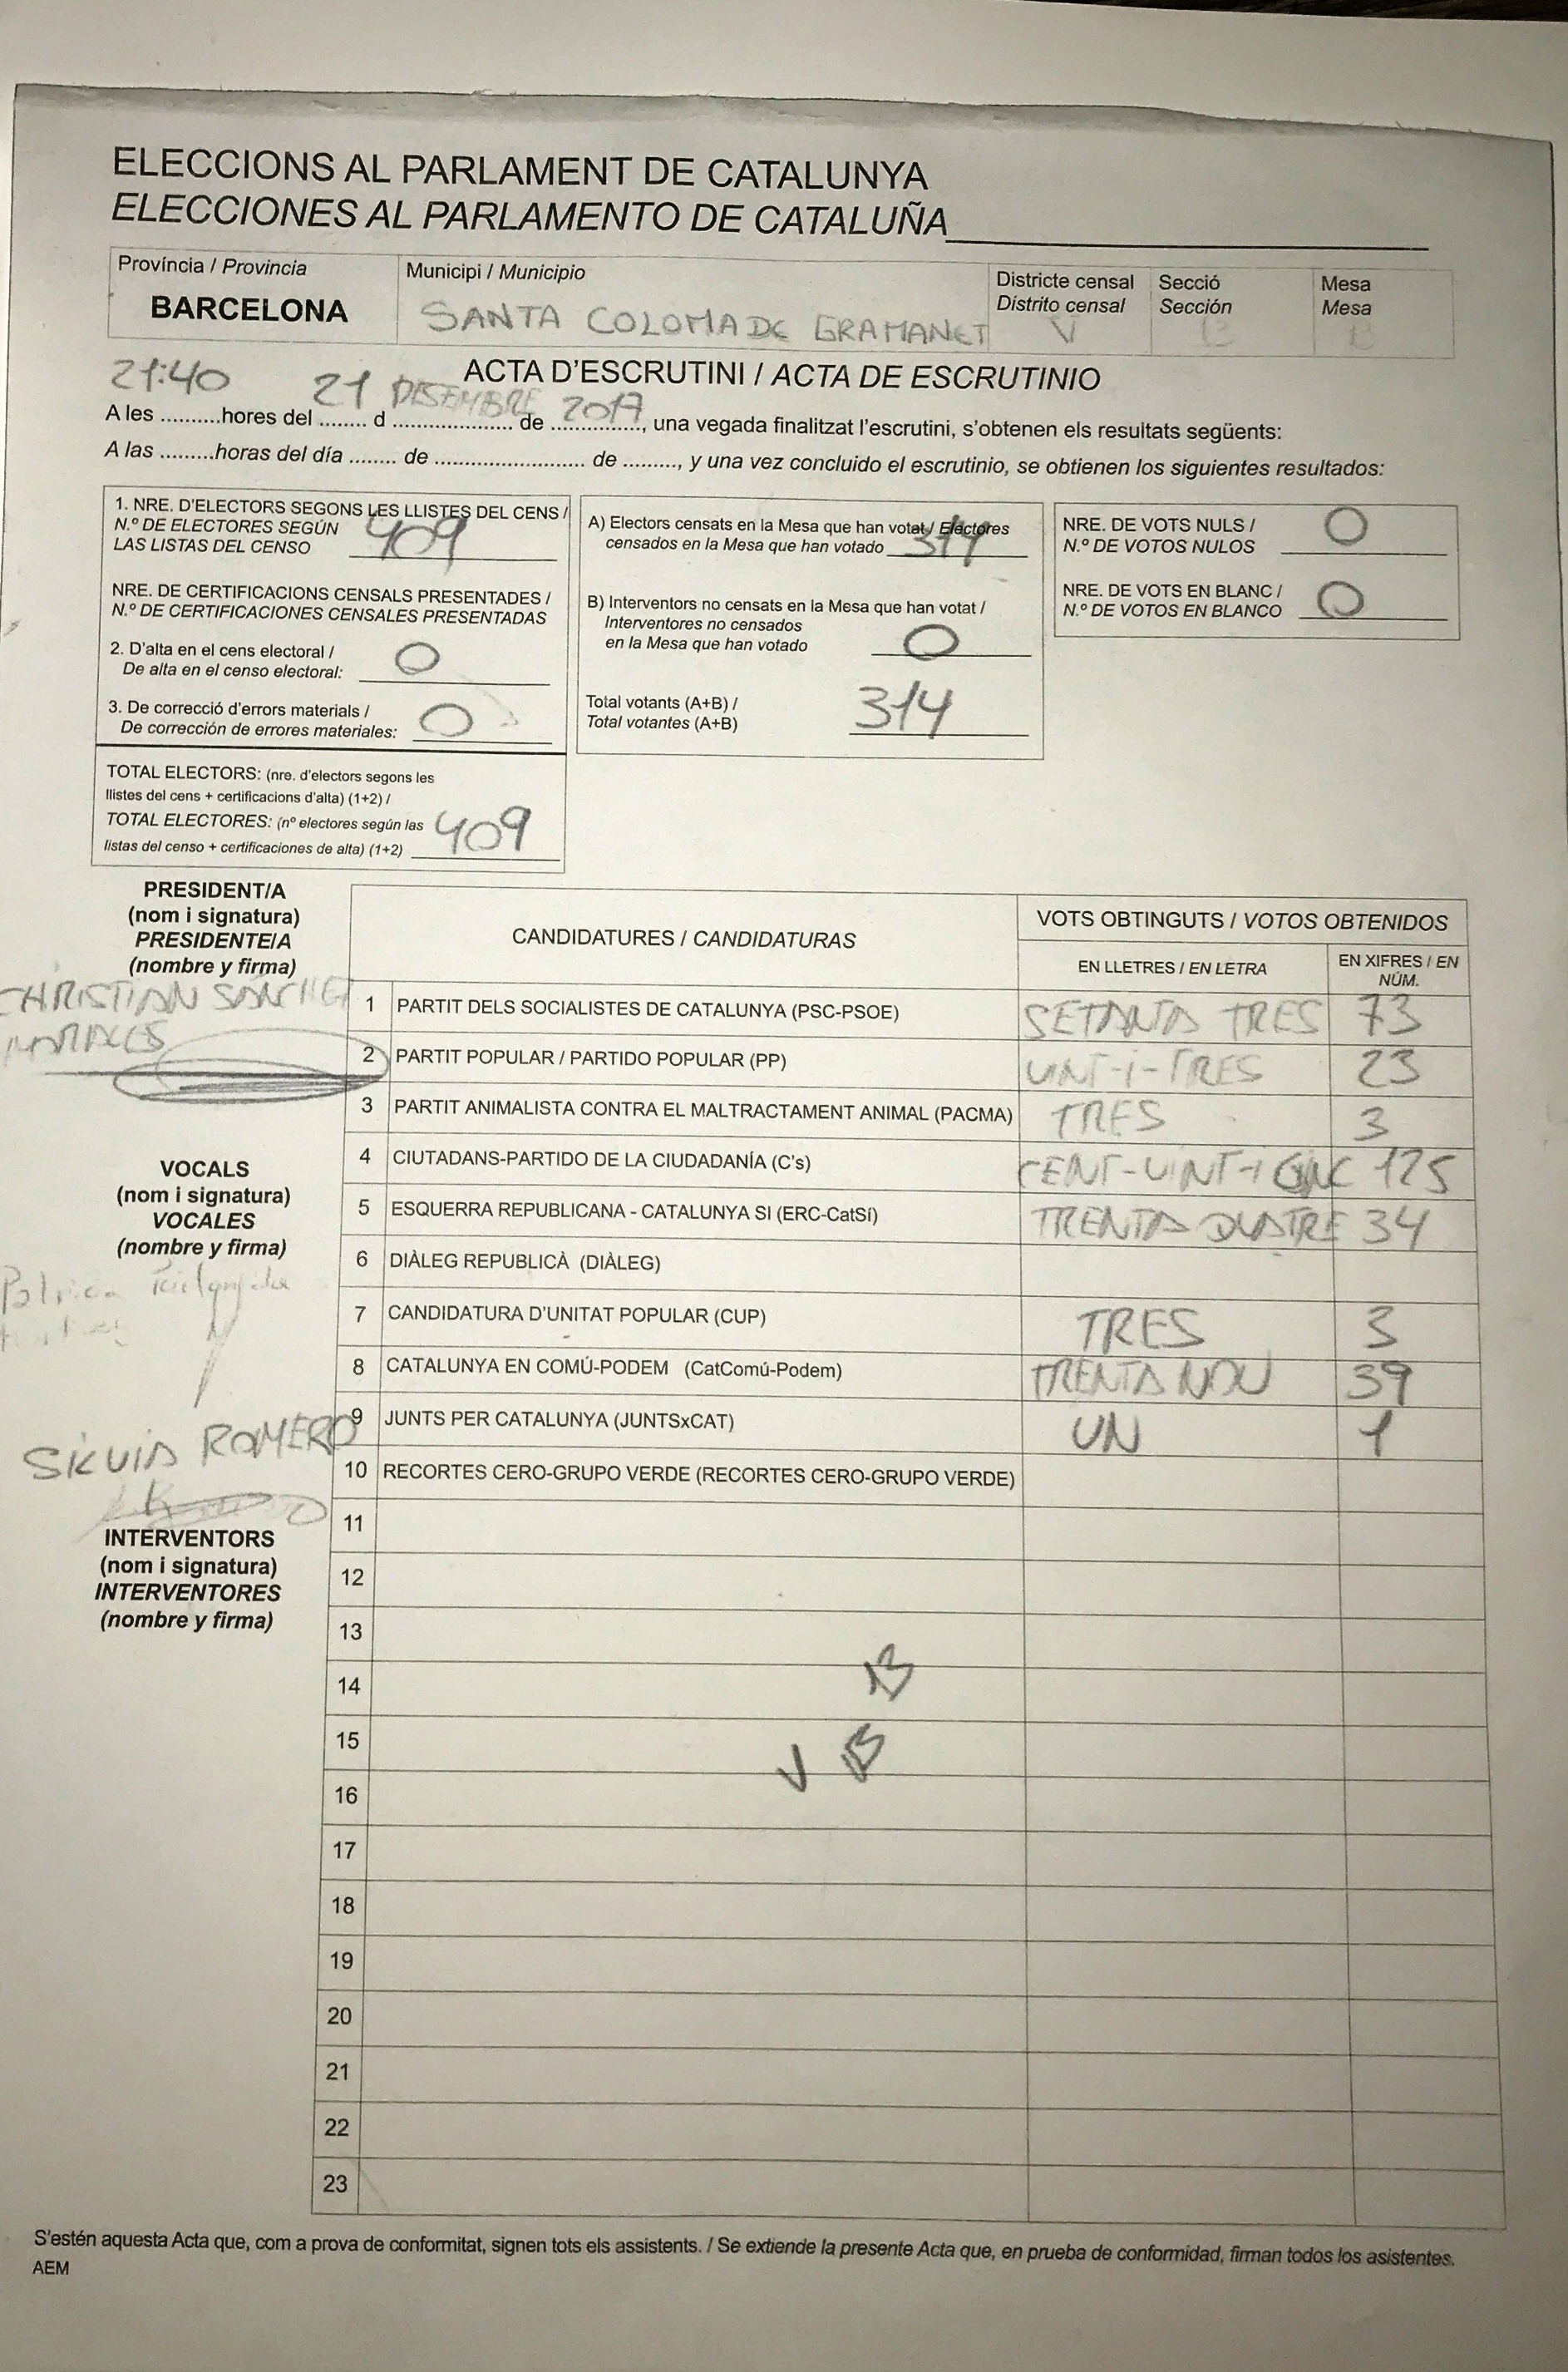 ELECCIONS AL PARLAMENT DE CATALUNYA
ELECCIONES AL PARLAMENTO DE CATALUÑA
Província / Provincia
BARCELONA
Municipi / Municipio
SANTA COLOMA DE GRAMANET
Districte censal
Distrito censal
V
Secció
Sección
Mesa
Mesa
B
ACTA D'ESCRUTINI / ACTA DE ESCRUTINIO
21:40 21 DESEMBRE 2017
A les ..........hores del ........ d .................... de ..............., una vegada finalitzat l'escrutini, s'obtenen els resultats següents:
A las .........horas del día ........ de ......................... de ........., y una vez concluido el escrutinio, se obtienen los siguientes resultados:
1. NRE. D'ELECTORS SEGONS LES LLISTES DEL CENS /
N.º DE ELECTORES SEGÚN
LAS LISTAS DEL CENSO 409
NRE. DE CERTIFICACIONS CENSALS PRESENTADES /
N.º DE CERTIFICACIONES CENSALES PRESENTADAS
2. D'alta en el cens electoral /
De alta en el censo electoral: 0
3. De correcció d'errors materials /
De corrección de errores materiales: 0
TOTAL ELECTORS: (nre. d'electors segons les
llistes del cens + certificacions d'alta) (1+2) /
TOTAL ELECTORES: (nº electores según las
listas del censo + certificaciones de alta) (1+2) 409
A) Electors censats en la Mesa que han votat / Electores
censados en la Mesa que han votado 314
B) Interventors no censats en la Mesa que han votat /
Interventores no censados
en la Mesa que han votado 0
Total votants (A+B) /
Total votantes (A+B) 314
NRE. DE VOTS NULS /
N.º DE VOTOS NULOS 0
NRE. DE VOTS EN BLANC /
N.º DE VOTOS EN BLANCO 0
PRESIDENT/A
(nom i signatura)
PRESIDENTE/A
(nombre y firma)
CHRISTIAN SÁNCHEZ
MORALES
VOCALS
(nom i signatura)
VOCALES
(nombre y firma)
SILVIA ROMERO
INTERVENTORS
(nom i signatura)
INTERVENTORES
(nombre y firma)
CANDIDATURES / CANDIDATURAS
VOTS OBTINGUTS / VOTOS OBTENIDOS
EN LLETRES / EN LETRA
EN XIFRES / EN
NÚM.
1 PARTIT DELS SOCIALISTES DE CATALUNYA (PSC-PSOE) SETANTA TRES 73
2 PARTIT POPULAR / PARTIDO POPULAR (PP) VINT-I-TRES 23
3 PARTIT ANIMALISTA CONTRA EL MALTRACTAMENT ANIMAL (PACMA) TRES 3
4 CIUTADANS-PARTIDO DE LA CIUDADANÍA (C's) CENT-VINT-I CINC 125
5 ESQUERRA REPUBLICANA - CATALUNYA SI (ERC-CatSí) TRENTA QUATRE 34
6 DIÀLEG REPUBLICÀ (DIÀLEG)
7 CANDIDATURA D'UNITAT POPULAR (CUP) TRES 3
8 CATALUNYA EN COMÚ-PODEM (CatComú-Podem) TRENTA NOU 39
9 JUNTS PER CATALUNYA (JUNTSxCAT) UN 1
10 RECORTES CERO-GRUPO VERDE (RECORTES CERO-GRUPO VERDE)
11
12
13
14
15
16
17
18
19
20
21
22
23
S'estén aquesta Acta que, com a prova de conformitat, signen tots els assistents. / Se extiende la presente Acta que, en prueba de conformidad, firman todos los asistentes.
AEM